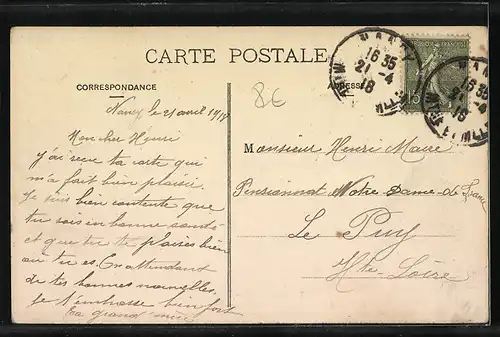 CARTE POSTALE
CORRESPONDANCE
ADRESSE
NANCY
16 35
21 - 4
18
15
8€
Nancy le 21 avril 1918
Mon cher Henri
J'ai reçue ta carte qui
m'a fait bien plaisir.
Je suis bien contente que
tu sois en bonne santé
et que tu te plaises bien
où tu es. En Attendant
de tes bonnes nouvelles.
Je t'embrasse bien fort
Ta grand mère
Monsieur Henri Maire
Pensionnat Notre Dame-de France
Le Puy
Hte-Loire